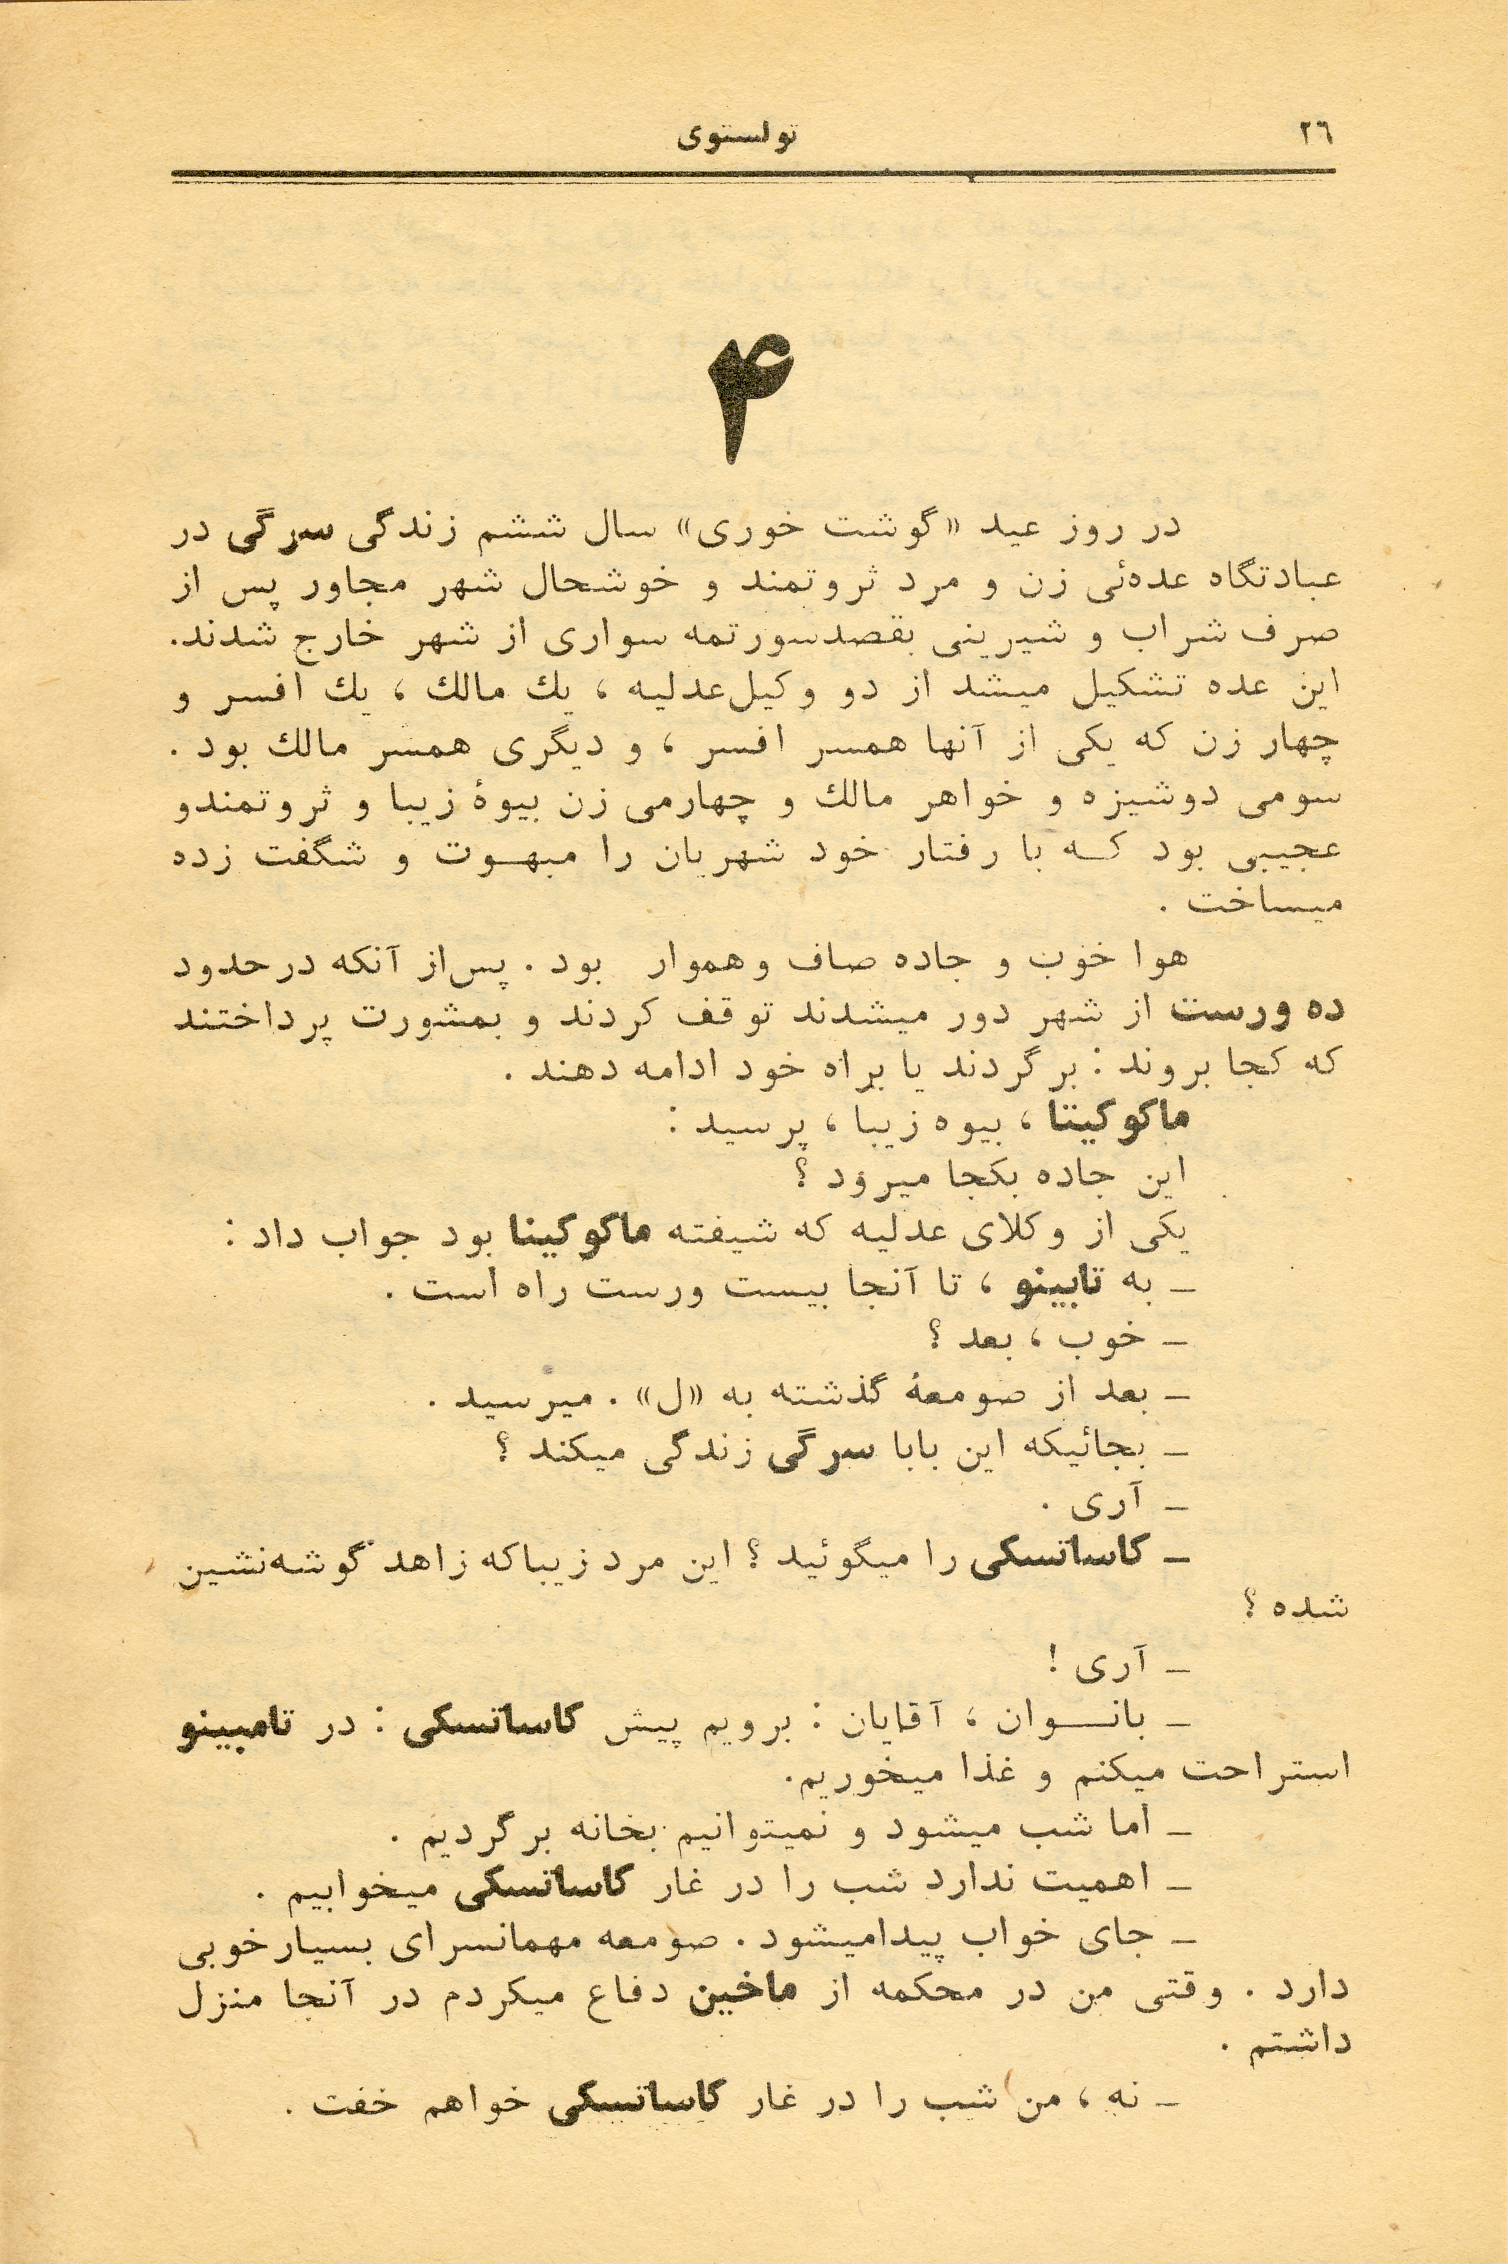 ۲٦
تولستوی
۴
در روز عید «گوشت خوری» سال ششم زندگی سرگی در
عبادتگاه عده‌ئی زن و مرد ثروتمند و خوشحال شهر مجاور پس از
صرف شراب و شیرینی بقصدسورتمه سواری از شهر خارج شدند.
این عده تشکیل میشد از دو وکیل‌عدلیه ، یك مالك ، یك افسر و
چهار زن که یکی از آنها همسر افسر ، و دیگری همسر مالك بود .
سومی دوشیزه و خواهر مالك و چهارمی زن بیوهٔ زیبا و ثروتمندو
عجیبی بود کـه با رفتار خود شهریان را مبهـوت و شگفت زده
میساخت .
هوا خوب و جاده صاف وهموار بود . پس‌از آنکه درحدود
ده ورست از شهر دور میشدند توقف کردند و بمشورت پرداختند
که کجا بروند : برگردند یا براه خود ادامه دهند .
ماکوکینا ، بیوه زیبا ، پرسید :
این جاده بکجا میرود ؟
یکی از وکلای عدلیه که شیفته ماکوکینا بود جواب داد :
ـ به تابینو ، تا آنجا بیست ورست راه است .
ـ خوب ، بعد ؟
ـ بعد از صومعهٔ گذشته به «ل» . میرسید .
ـ بجائیکه این بابا سرگی زندگی میکند ؟
ـ آری .
ـ کاساتسکی را میگوئید ؟ این مرد زیباکه زاهد گوشه‌نشین
شده ؟
ـ آری !
ـ بانـــوان ، آقایان : برویم پیش کاساتسکی : در تامبینو
استراحت میکنم و غذا میخوریم.
ـ اما شب میشود و نمیتوانیم بخانه برگردیم .
ـ اهمیت ندارد شب را در غار کاساتسکی میخوابیم .
ـ جای خواب پیدامیشود . صومعه مهمانسرای بسیارخوبی
دارد . وقتی من در محکمه از ماخین دفاع میکردم در آنجا منزل
داشتم .
ـ نه ، من شب را در غار کاساتسکی خواهم خفت .